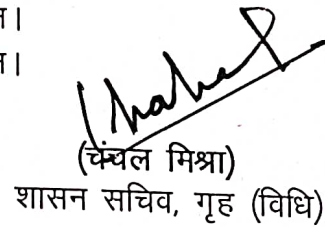 न।
न।
(चंचल मिश्रा)
शासन सचिव, गृह (विधि)